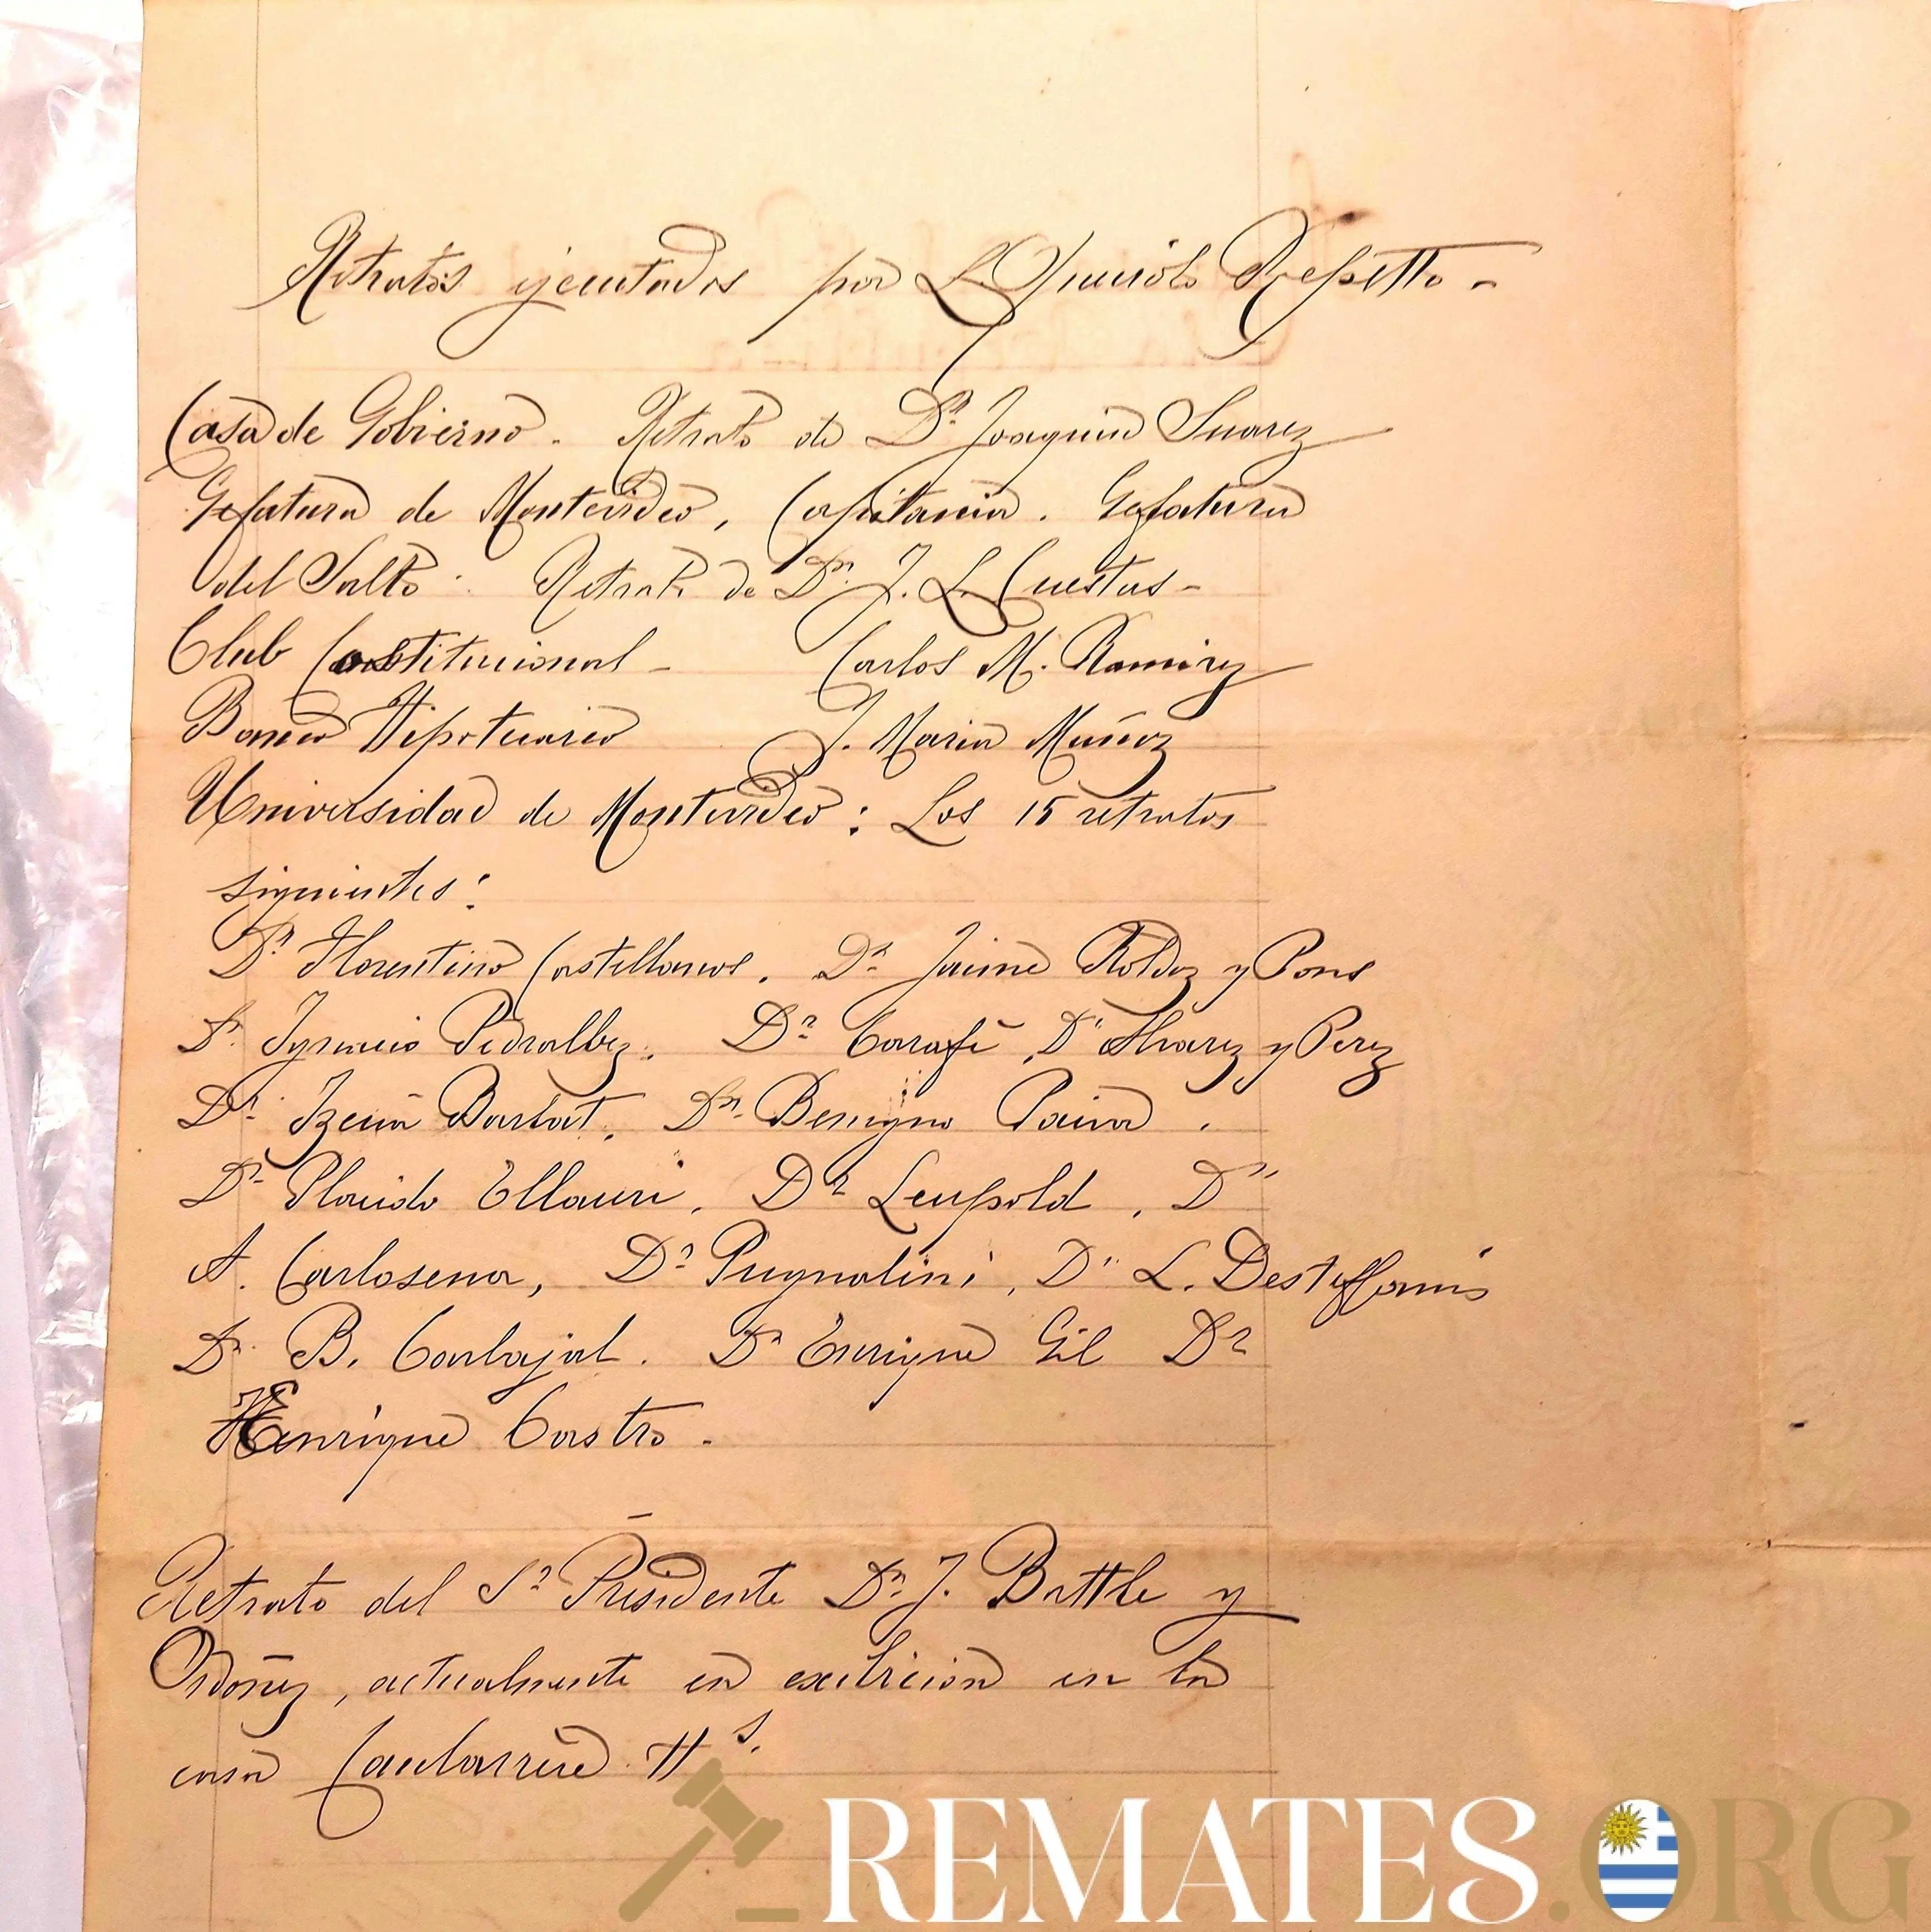 Retratos ejecutados por L. Queirolo Repetto -
Casa de Gobierno. Retrato de Dn Joaquin Suarez
Gefatura de Montevideo, Capitania. Gefatura
del Salto: Retrato de Dn. J. L. Cuestas -
Club Constitucional - Carlos M. Ramirez
Banco Hipotecario J. Maria Muñoz
Universidad de Montevideo: Los 15 retratos
siguientes:
Dr Florentino Castellanos. Dr Jaime Roldoz y Pons
Dr. Ignacio Pedralbez. Dr Carafi, Dr Alvarez y Perez
Dr. Barbat. Dn. Benigno Paiva.
Dr Plácido Ellauri. Dr Leupold, Dr
A. Carlosena, Dr Pugnalini, Dr L. Desteffanis
Dr. B. Carbajal. Dr Enrique Gil Dr
Henrique Castro.
Retrato del Sr Presidente Dn. J. Battle y
Ordoñez, actualmente en exibicion en la
casa Caubarrere Hs.
REMATES.ORG